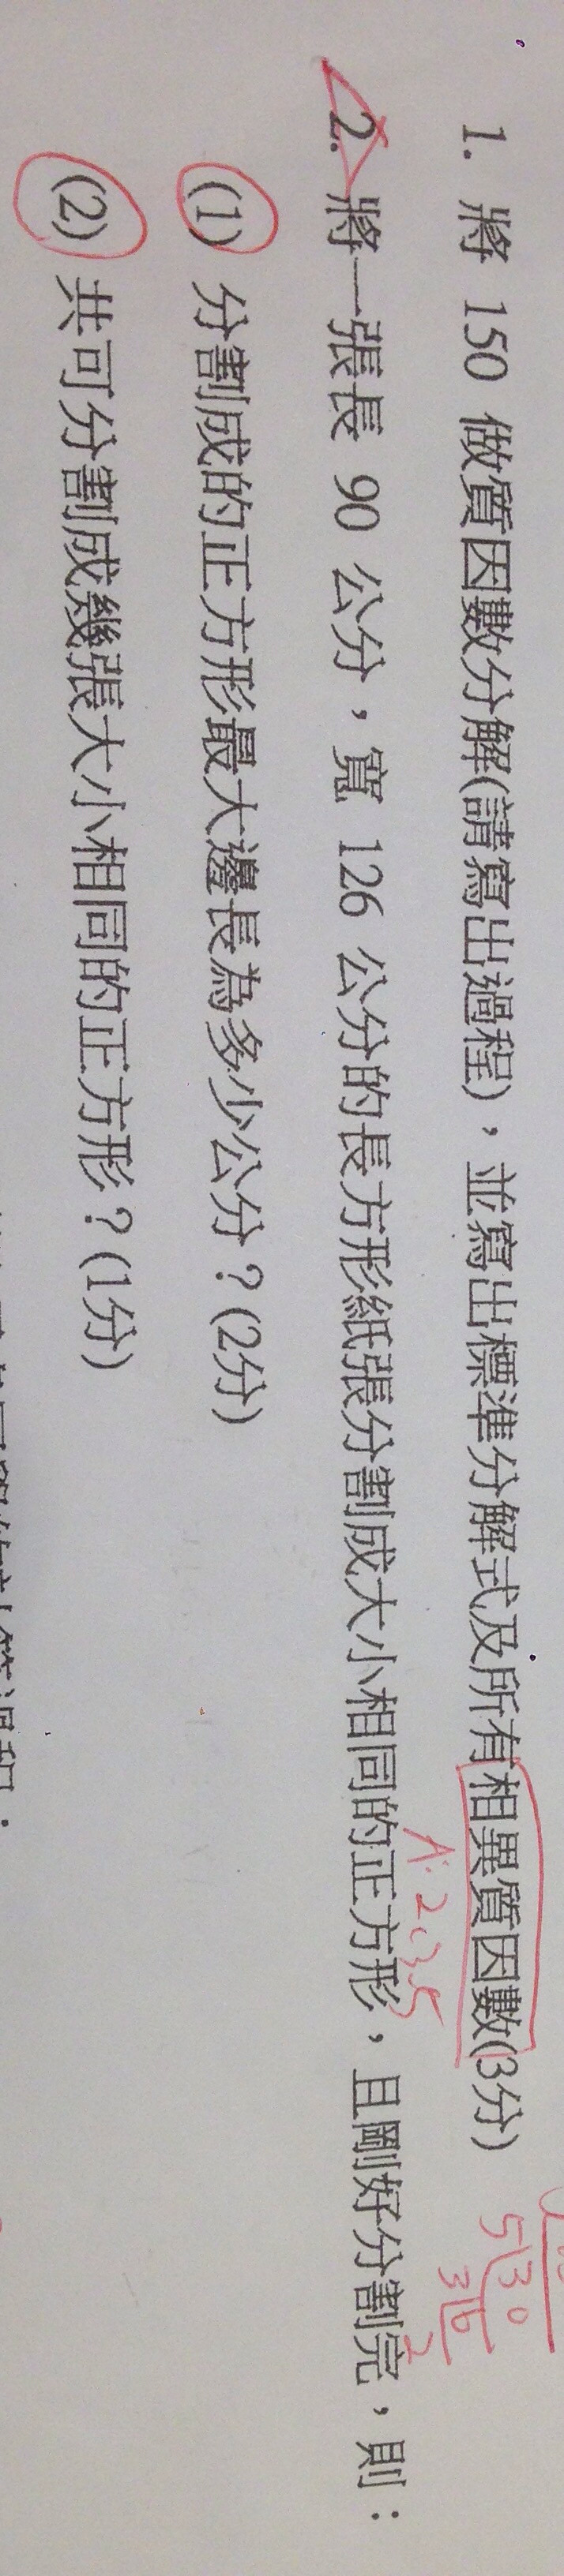 1. 將 150 做質因數分解(請寫出過程)，並寫出標準分解式及所有相異質因數(3分)
A: 2,3,5
5 30
3 6
2
2. 將一張長 90 公分，寬 126 公分的長方形紙張分割成大小相同的正方形，且剛好分割完，則：
(1) 分割成的正方形最大邊長為多少公分？(2分)
(2) 共可分割成幾張大小相同的正方形？(1分)